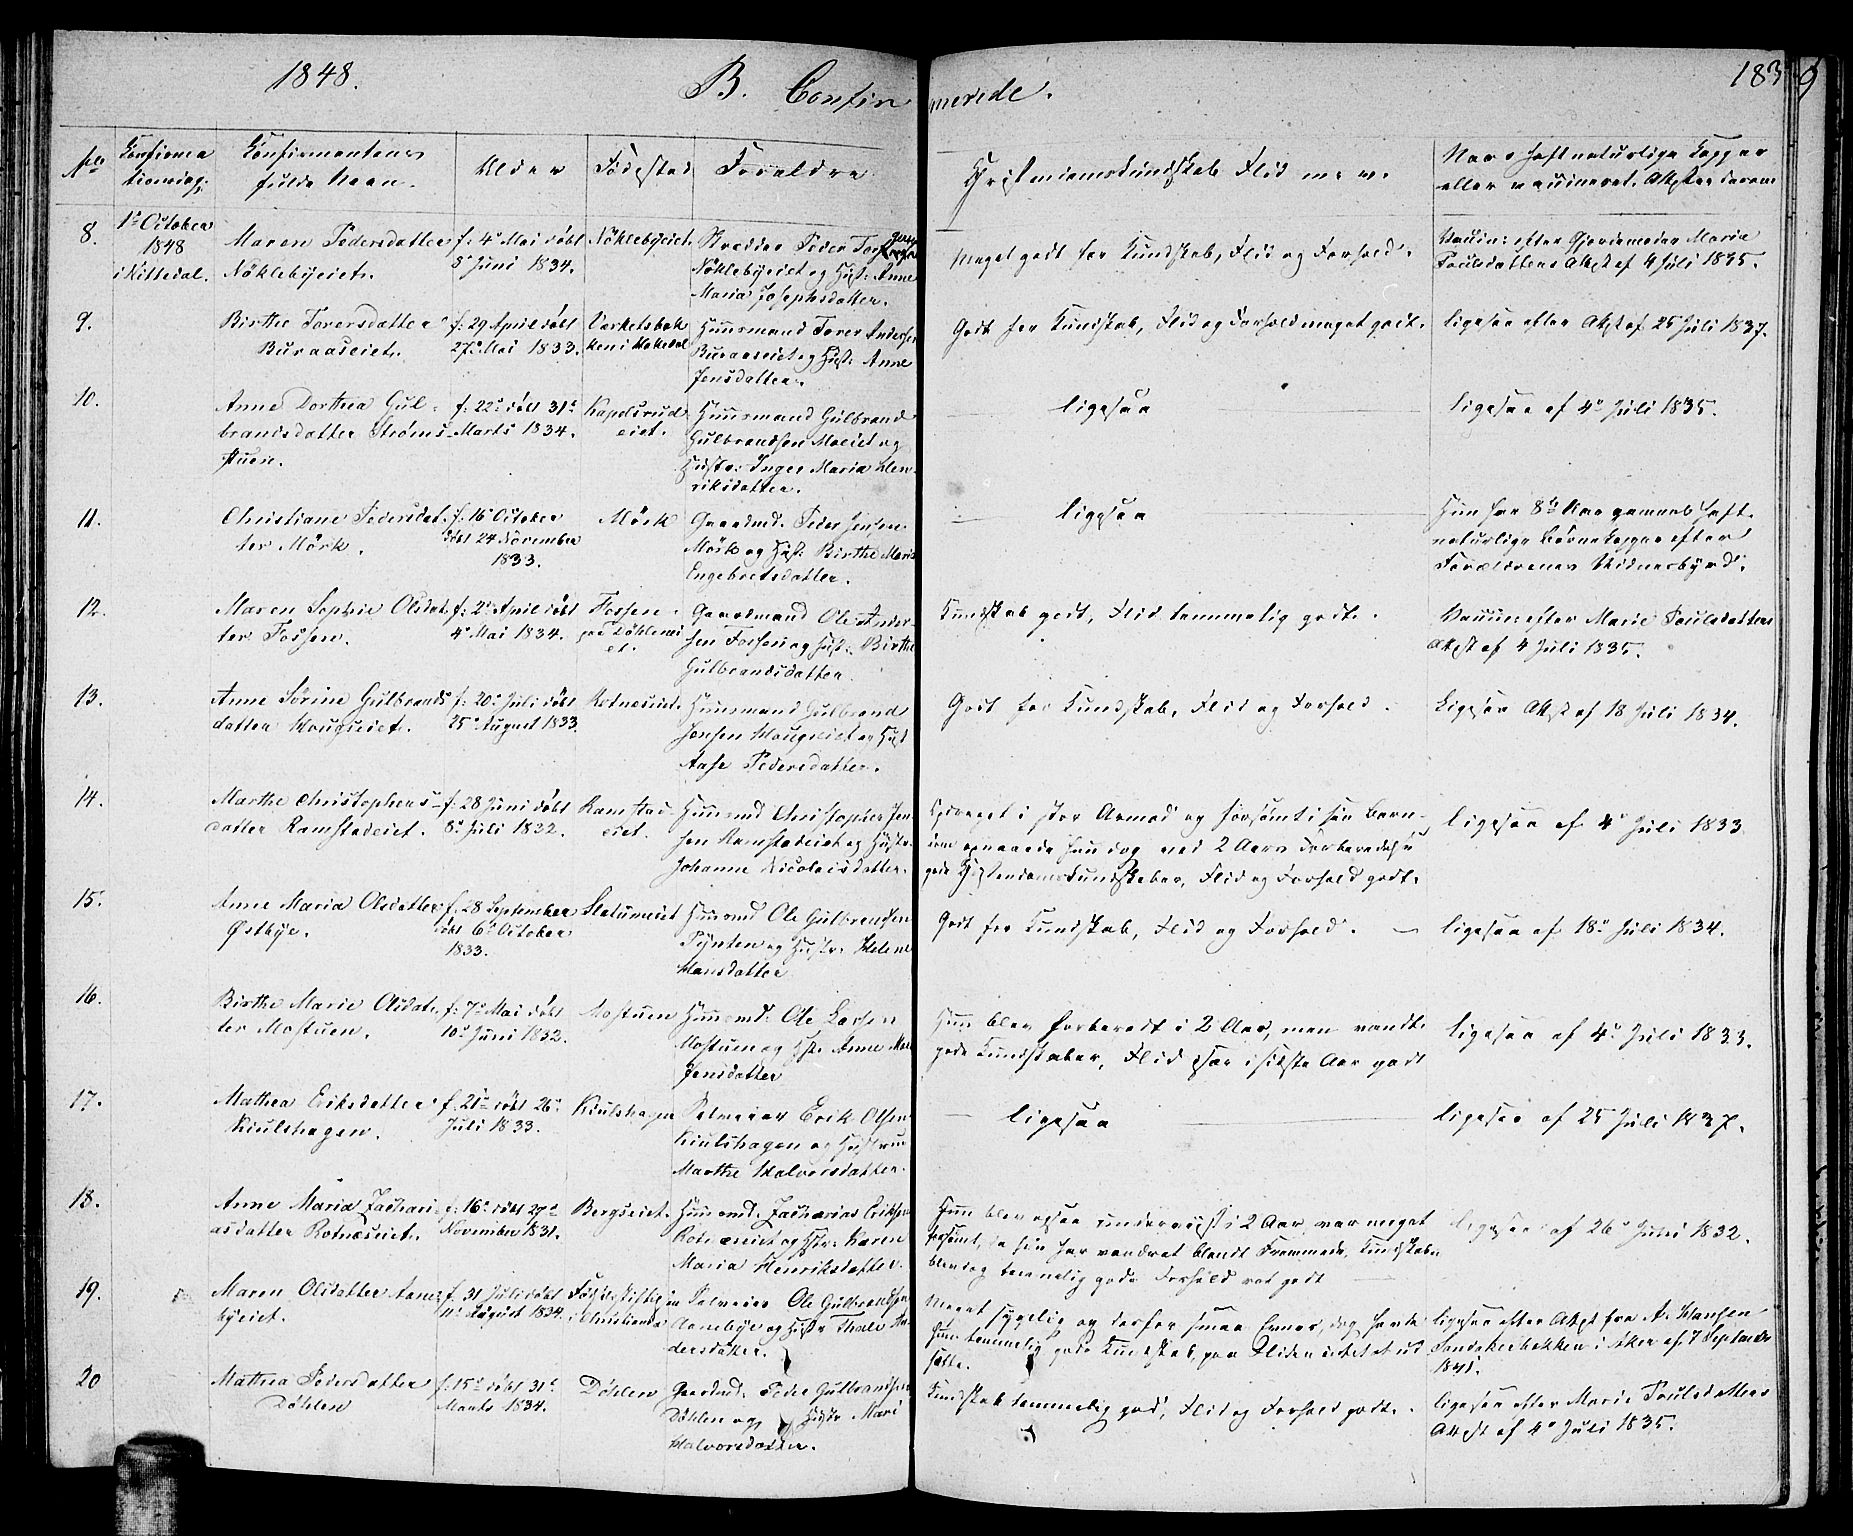 1848.
B. Confirmerede.
183
No
Confirmationsdag.
Confirmantens fulde Navn.
Alder
Fødested
Forældre
Christendomskundskab Flid m. v.
Hars haft naturlige Kopper
eller vaccineret. Attester derom
8.
1ste October
1848
i Nittedal.
Maren Pedersdatter
Nöklebyeiet.
f. 4de Mai döbt
8de Juni 1834.
Nöklebyeiet.
Nöklebyeiet og Hust: Anne
Maria Josephsdatter.
Meget godt for Kundskab, Flid og Forhold.
Vaccin: efter Gjordemoder Marie
Poulsdatters Attest af 4 Juli 1835.
9.
Birthe Torersdatter
Buraaseiet.
f. 29 April döbt
27de Mai 1833.
Huusmand Torer Andersen
Buraaseiet og Hust: Anne
Jensdatter.
Godt for Kundskab, Flid og Forhold meget godt.
ligesaa efter Attest af 25 Juli 1837.
10.
Anne Dorthea Gul-
brandsdatter Ströms-
stuen.
f. 22de döbt 31te
Marts 1834.
Kapelsrud-
eiet.
Huusmand Gulbrand
Gulbrandsen Moeiet og
Hustr: Inger Maria Hen-
riksdatter.
ligesaa
ligesaa af 4de Juli 1835.
11.
Christiane Pedersdat-
ter Mörk.
f. 16 October
döbt 24 November
1833.
Mörk
Gaardmd. Peder Jensen
Mörk og Hust: Birthe Marie
Engebretsdatter.
ligesaa
Hun har 8te Aar gammel haft
naturlige Börnekopper efter
Forældrenes Vidnesbyrd.
12.
Maren Sophie Olsdat-
ter Fossen.
f. 2de April döbt
4de Mai 1834.
Fossen
paa Döhlenei
et.
Gaardmand Ole Ander-
sen Fossen og Hust: Birthe
Gulbrandsdatter.
Kundskab godt, Flid temmelig godt.
Vaccin efter Marie Poulsdatters
Attest af 4 Juli 1835.
13.
Anne Sörine Gulbrands
datter Haugeiet.
f. 20de Juli döbt
25de August 1833.
Rotneseiet.
Huusmand Gulbrand
Jensen Haugeiet og Hust
Aase Pedersdatter.
Godt for Kundskab, Flid og Forhold.
Ligesaa Attest af 18 Juli 1834.
14.
Marthe Christophers-
datter Ramstadeiet.
f. 28 Juni döbt
8de Juli 1832.
Ramstad-
eiet.
Huusmd Christopher Jen-
sen Ramstadeiet og Hustr.
Johanne Nicolaisdatter.
Opdraget i stor Armod og forsömt i sin Barn-
dom opnaaede hun dog ved 2 Aars Forberedelse
gode Christendomskundskaber, Flid og Forhold godt.
ligesaa af 4de Juli 1833
15.
Anne Maria Olsdatter
Østbye.
f. 28 September
döbt 6te October
1833.
Slatumeiet
Huusmd Ole Gulbrandsen
Pynten og Hustr. Helene
Hansdatter
Godt for Kundskab, Flid og Forhold.
ligesaa af 18de Juli 1834.
16.
Birthe Marie Olsdat-
ter Mostuen.
f. 7de Mai döbt
10de Juni 1832.
Mostuen
Huusmd. Ole Larsen
Mostuen og Hst. Anne Marie
Jensdatter
Hun blev forberedt i 2 Aar, men vandt
gode Kundskaber, Flid især i sidste Aar godt
ligesaa af 4de Juli 1833.
17.
Mathea Eriksdatter
Kiulshagen.
f. 21de döbt 26de
Juli 1833.
Kiulshagen
Selveier Erik Olsen
Kiulshagen og Hustrue
Marthe Halvorsdatter.
ligesaa
ligesaa af 25 Juli 1837.
18.
Anne Maria Zachari-
asdatter Rotneseiet.
f. 16de döbt 27de
November 1831.
Bergseiet.
Huusmd. Zacharias Eriksen
Rotneseiet og Hstr. Karen
Maria Henriksdatter.
Hun blev ogsaa underviist i 2 Aar, var meget
forsömt, da hun har vandret blandt Fremmede, Kundskaben
blev dog temmelig gode Forhold vat godt
ligesaa af 26de Juni 1832.
19.
Maren Olsdatter Aane-
byeiet.
f. 31 Juli döbt
11te August 1834.
Födselsstiftelsen
i Christiania
Selveier Ole Gulbrandsen
Aanebye og Hustr Thale An-
dersdatter.
Meget sygelig og derfor smaa Evner, dog havde
hun temmelig gode Kundskab, paa Fliden intet at ud
sætte.
ligesaa efter Attest fra A. Hansen
Sandakerbakken i Aker af 7 September
1841.
20
Mathea Pedersdatter
Döhlen
f. 15de döbt 31te
Marts 1834.
Döhlen
Gaardmd. Peder Gulbrandsen
Döhlen og Hustr Mari
Halvorsdatter.
Kundskab temmelig god, Flid og Forhold godt.
ligesaa efter Marie Poulsdatters
Attest af 4de Juli 1835.